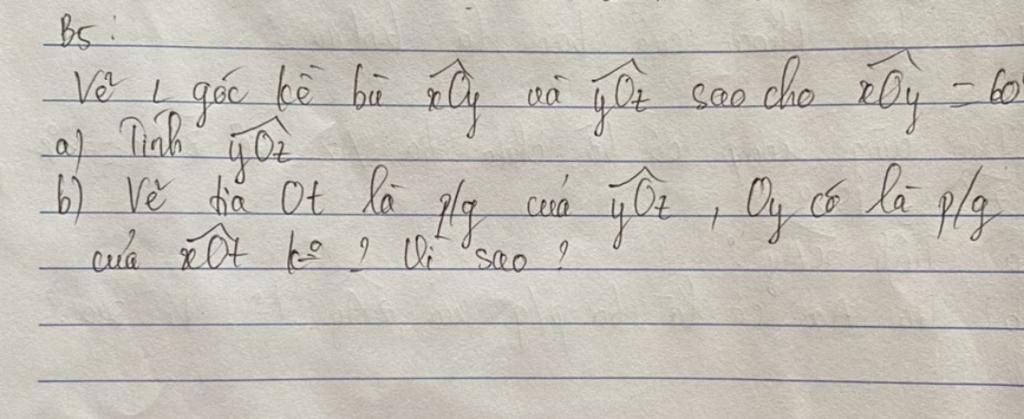 B5:
Vẽ 2 góc kề bù xOy và yOz sao cho xOy = 60
a) Tính yOz
b) Vẽ tia Ot là p/g của yOz, Oy có là p/g
của xOt kº? Vì sao?